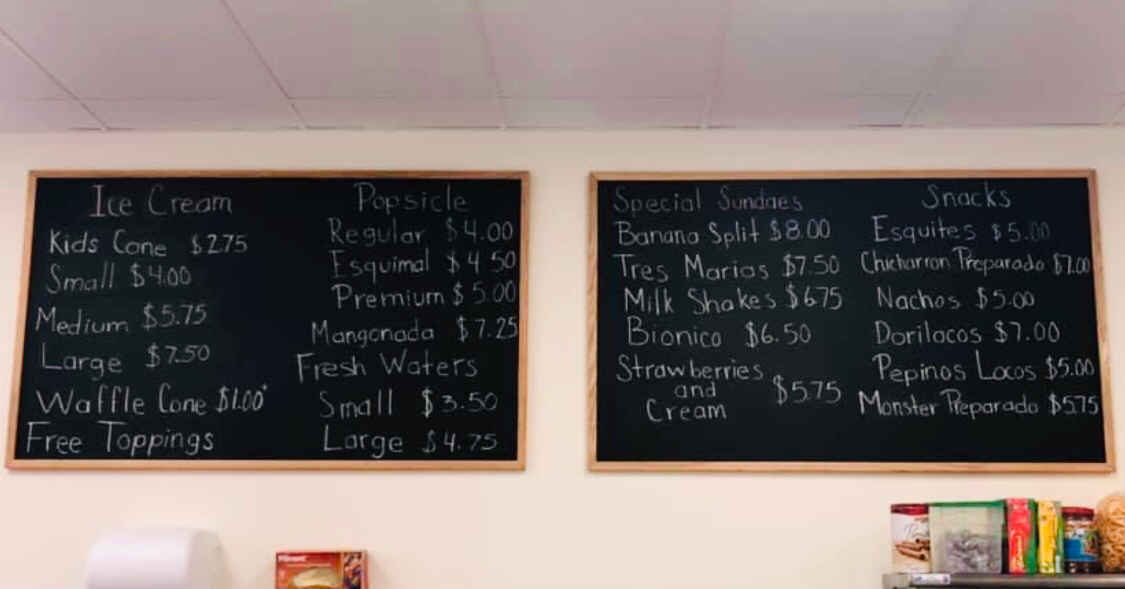 Ice Cream
Kids Cone $2.75
Small $4.00
Medium $5.75
Large $7.50
Waffle Cone $1.00
Free Toppings
Popsicle
Regular $4.00
Esquimal $4.50
Premium $5.00
Mangonada $7.25
Fresh Waters
Small $3.50
Large $4.75
Special Sundaes
Banana Split $8.00
Tres Marias $7.50
Milk Shakes $6.75
Bionico $6.50
Strawberries
and
Cream $5.75
Snacks
Esquites $5.00
Chicharron Preparado $7.00
Nachos $5.00
Dorilocos $7.00
Pepinos Locos $5.00
Monster Preparado $5.75